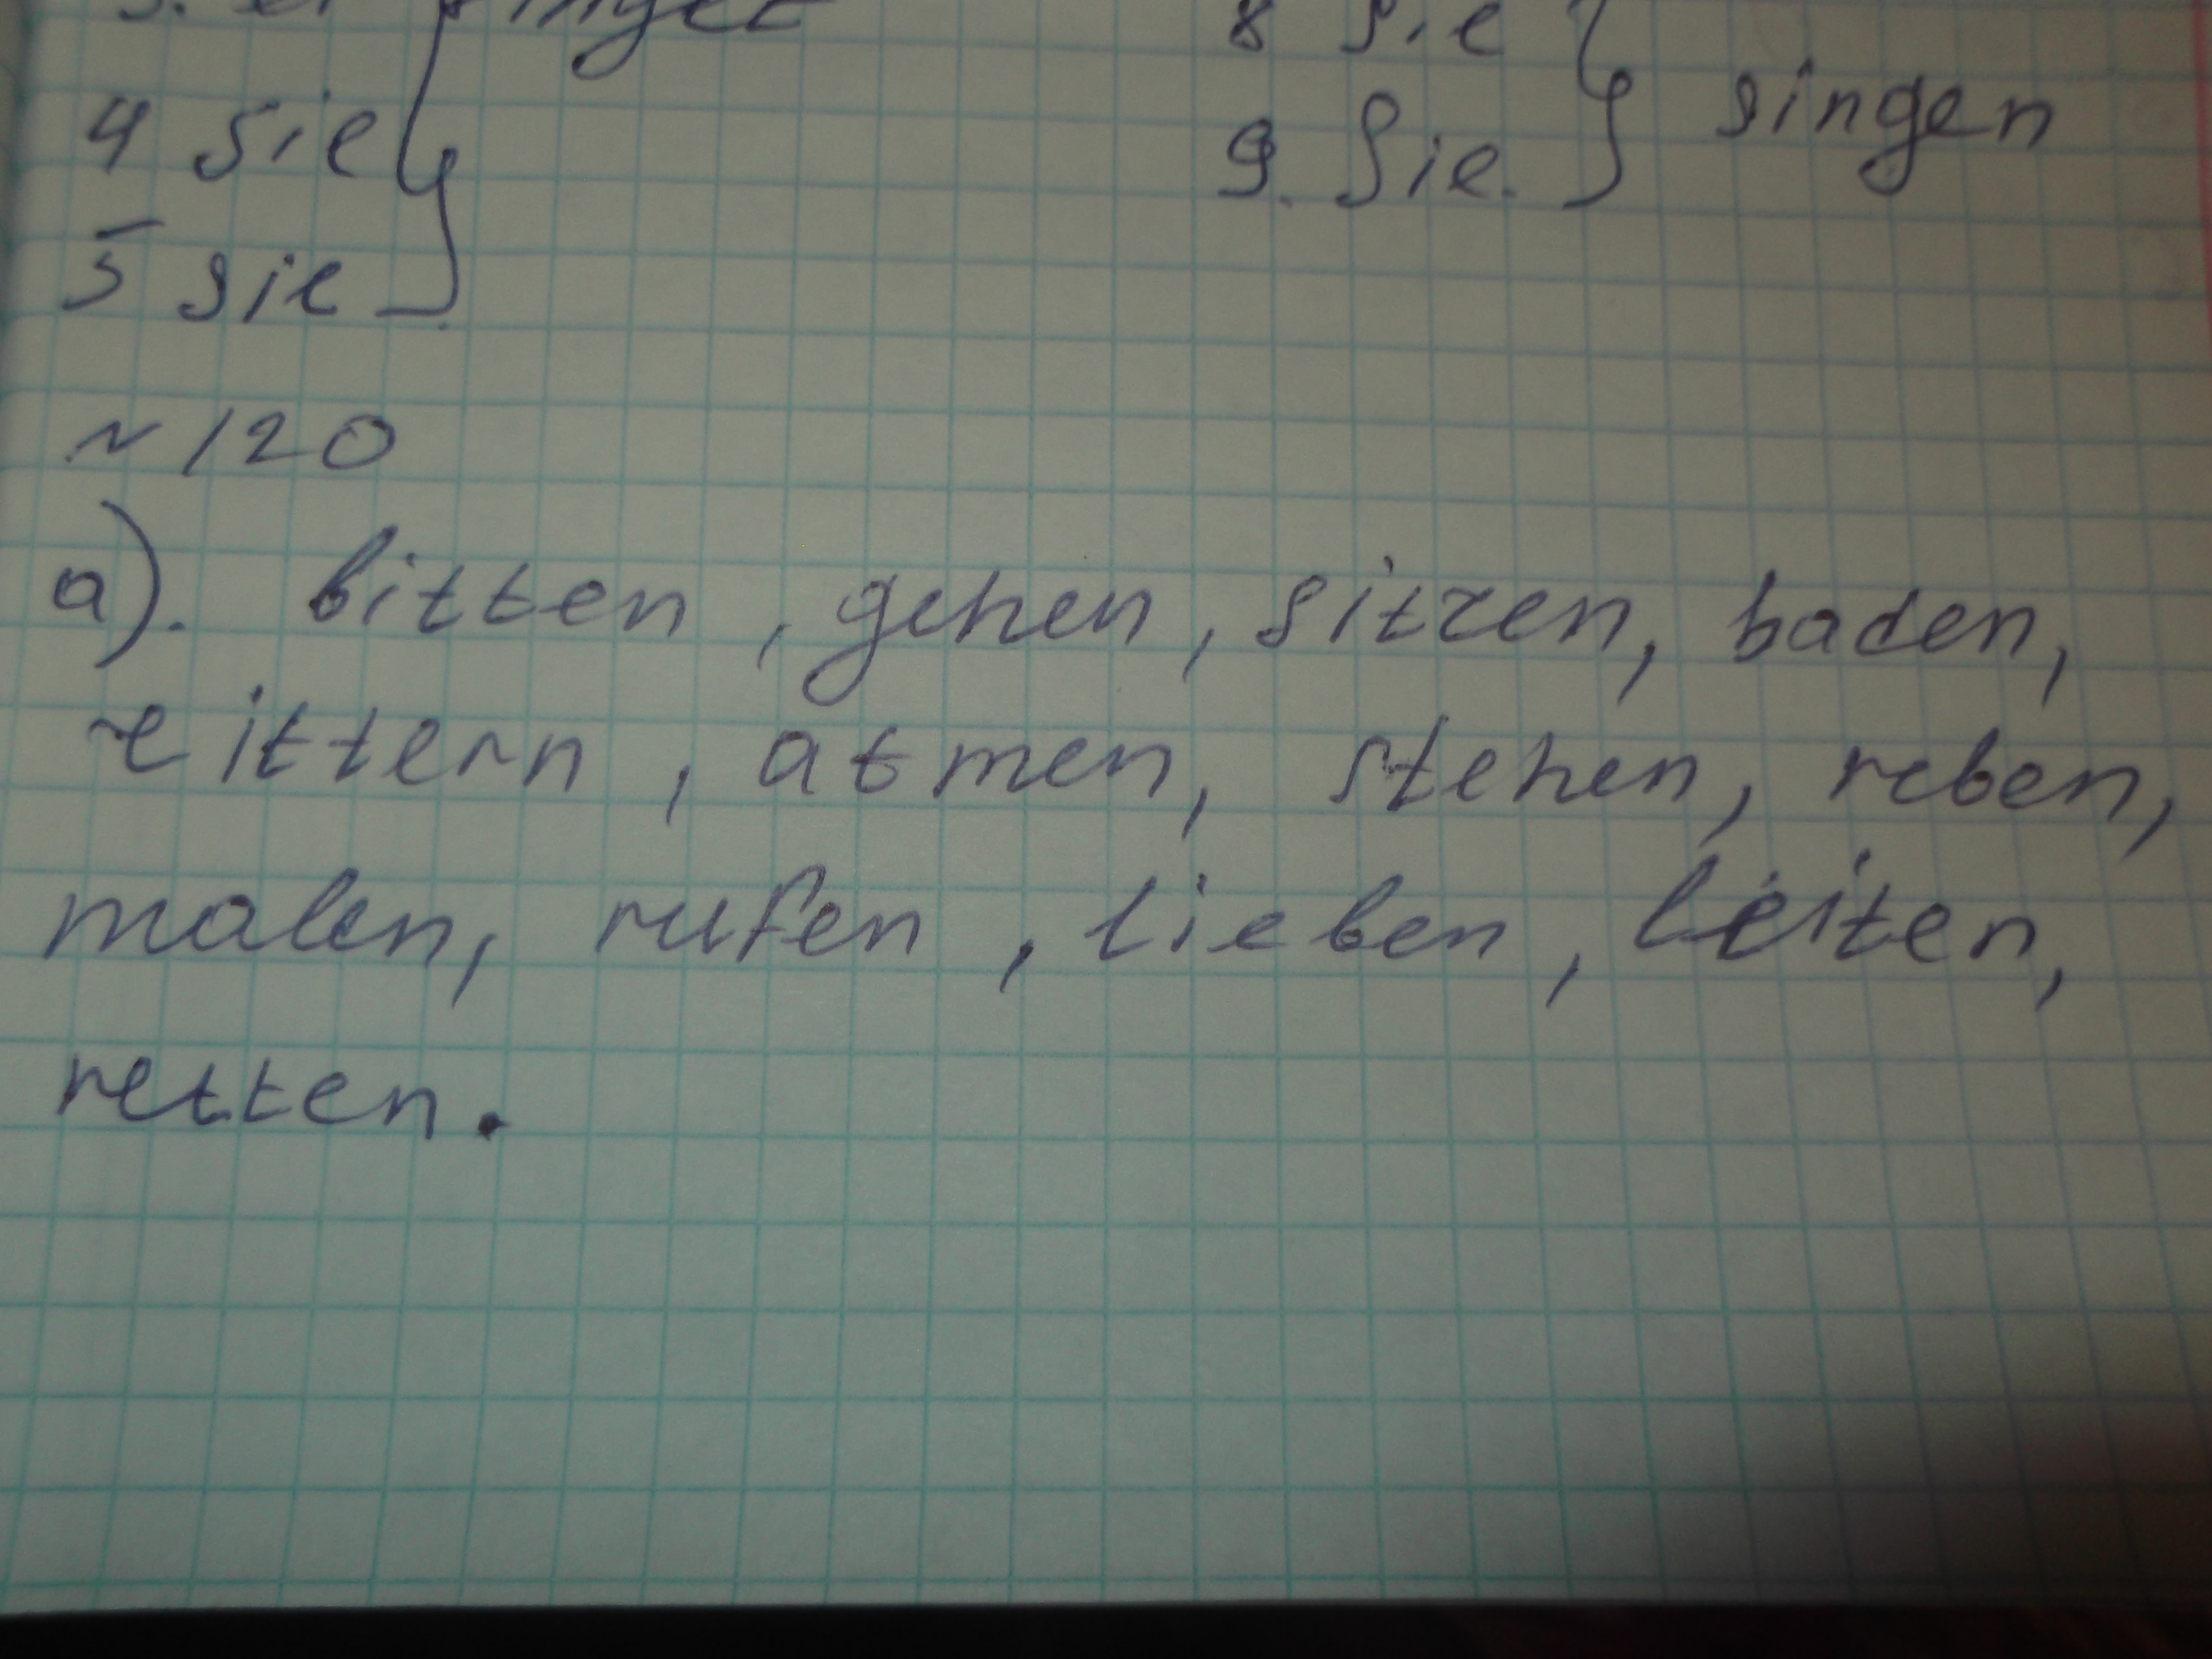 3. er singet
8 sie
4 sie
9. Sie. singen
5 sie
~ 120
a). bitten, gehen, sitzen, baden,
zittern, atmen, stehen, reben,
malen, rufen, lieben, leiten,
retten.